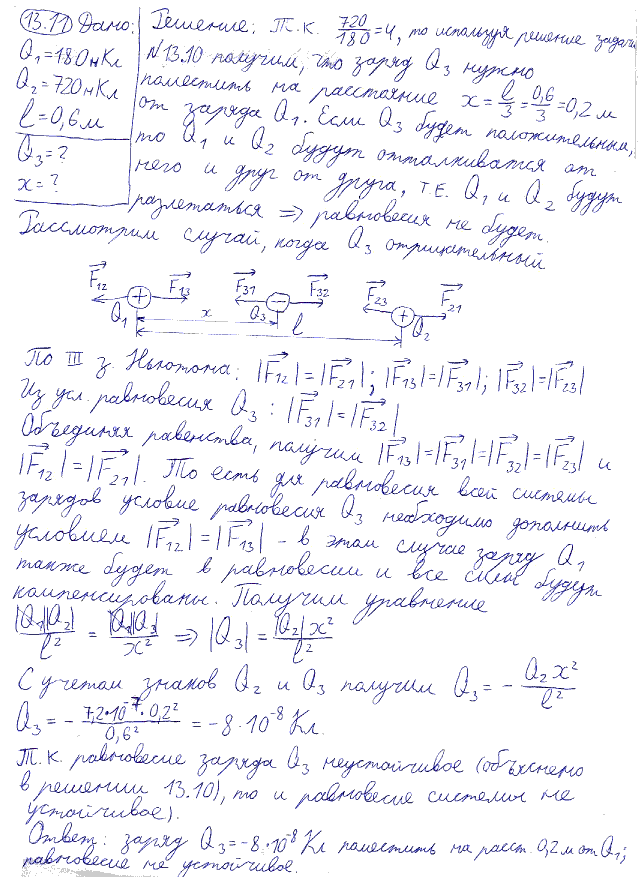 13.11 Дано: Решение: Т.к. 720/180 = 4, то используя решение задачи
Q₁=180нКл №13.10 получим, что заряд Q₃ нужно
Q₂=720нКл поместить на расстояние x = l/3 = 0,6/3 = 0,2 м
l=0,6м от заряда Q₁. Если Q₃ будет положительным,
Q₃=? то Q₁ и Q₂ будут отталкиватся от
x=? него и друг от друга, т.е. Q₁ и Q₂ будут
разлетаться ⇒ равновесия не будет.
Рассмотрим случай, когда Q₃ отрицательный
F₁₂ F₁₃ F₃₁ F₃₂ F₂₃ F₂₁
Q₁ + x Q₃ − l + Q₂
По III з. Ньютона: |F₁₂|=|F₂₁|; |F₁₃|=|F₃₁|; |F₃₂|=|F₂₃|
Из усл. равновесия Q₃: |F₃₁|=|F₃₂|
Объединяя равенства, получим |F₁₃|=|F₃₁|=|F₃₂|=|F₂₃| и
|F₁₂|=|F₂₁|. То есть для равновесия всей системы
зарядов условие равновесия Q₃ необходимо дополнить
условием |F₁₂|=|F₁₃| - в этом случае заряд Q₁
также будет в равновесии и все силы будут
компенсированы. Получим уравнение
|Q₁||Q₂|/l² = |Q₁||Q₃|/x² ⇒ |Q₃| = |Q₂|x²/l²
С учетом знаков Q₂ и Q₃ получим Q₃ = - Q₂x²/l²
Q₃ = - 7,2·10⁻⁷·0,2²/0,6² = -8·10⁻⁸ Кл.
Т.к. равновесие заряда Q₃ неустойчивое (объяснено
в решении 13.10), то и равновесие системы не
устойчивое).
Ответ: заряд Q₃=-8·10⁻⁸ Кл поместить на расст. 0,2м от Q₁;
равновесие не устойчивое.